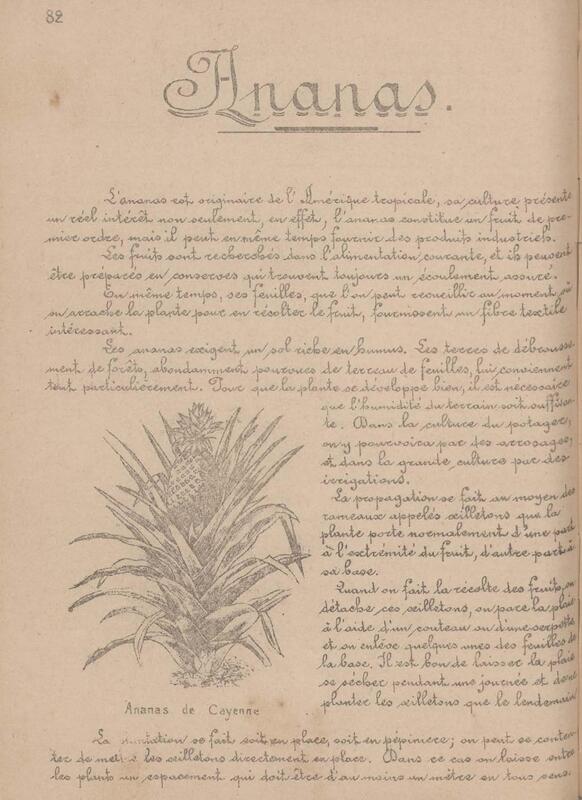 82
Ananas.
L'ananas est originaire de l'Amérique tropicale, sa culture présente
un réel intérêt non seulement, en effet, l'ananas constitue un fruit de pre-
mier ordre, mais il peut en même temps fournir des produits industriels.
Les fruits sont recherchés dans l'alimentation courante, et ils peuvent
être préparés en conserves qui trouvent toujours un écoulement assuré.
En même temps, ses feuilles, que l'on peut recueillir au moment où
on arrache la plante pour en récolter le fruit, fournissent un fibre textile
intéressant.
Les ananas exigent un sol riche en humus. Les terres de débrousse-
ment de forêts, abondamment pourvues de terreau de feuilles, lui conviennent
tout particulièrement. Pour que la plante se développe bien, il est nécessaire
que l'humidité du terrain soit suffisan-
te. Dans la culture du potager,
on y pourvoira par des arrosages,
et dans la grande culture par des
irrigations.
La propagation se fait au moyen des
rameaux appelés œilletons que la
plante porte normalement d'une part
à l'extrémité du fruit, d'autre part à
sa base.
Quand on fait la récolte des fruits, on
détache ces œilletons, on pare la plaie
à l'aide d'un couteau ou d'une serpette
et on enlève quelques unes des feuilles de
la base. Il est bon de laisser la plaie
se sécher pendant une journée et de ne
planter les œilletons que le lendemain
Ananas de Cayenne
La plantation se fait soit en place, soit en pépinière; on peut se conten-
ter de mettre les œilletons directement en place. Dans ce cas on laisse entre
les plants un espacement qui doit être d'au moins un mètre en tous sens.